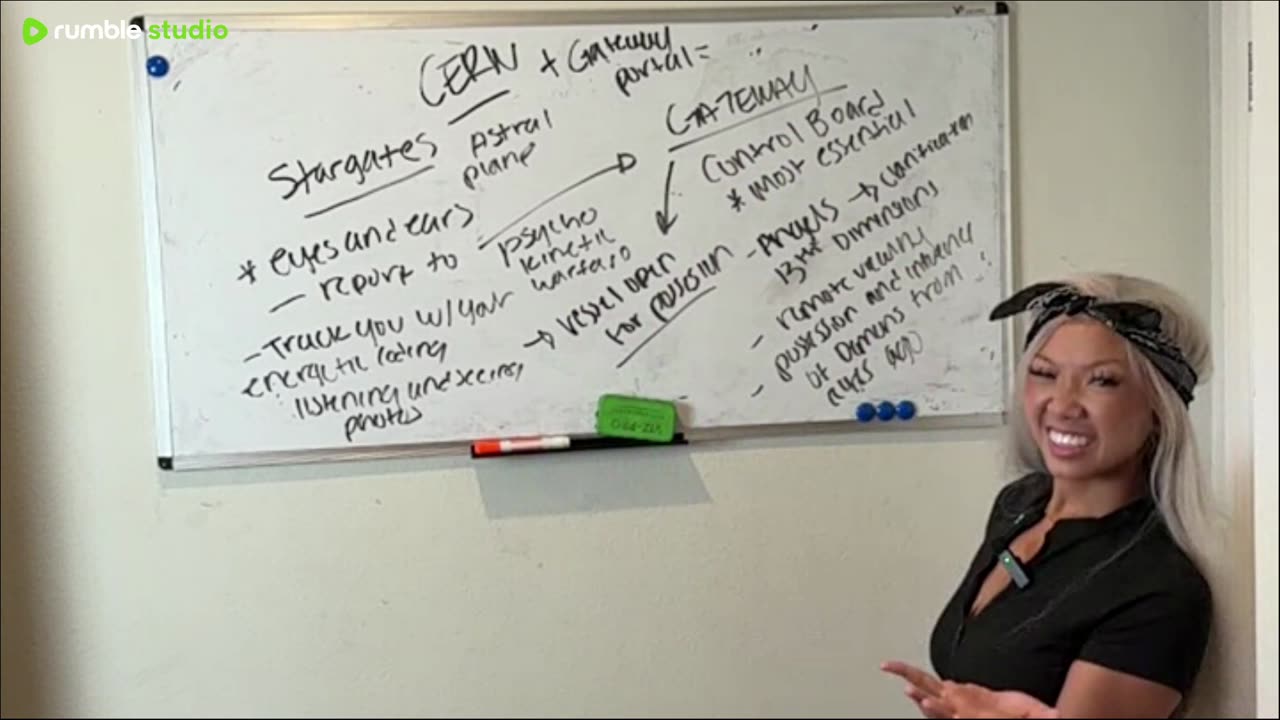 rumble studio
CERN + Gateway
portal =
Stargates
Astral
plane
* eyes and ears
- report to
psycho
kinetic
warfare
- Track you w/ your
energetic coding
listening and seeing
photos
→ vessel open
for possession
GATEWAY
Control Board
* most essential
- Angels → Clarification
13th Dimensions
- remote viewing
- possession and influence
of Demons from
ages ago